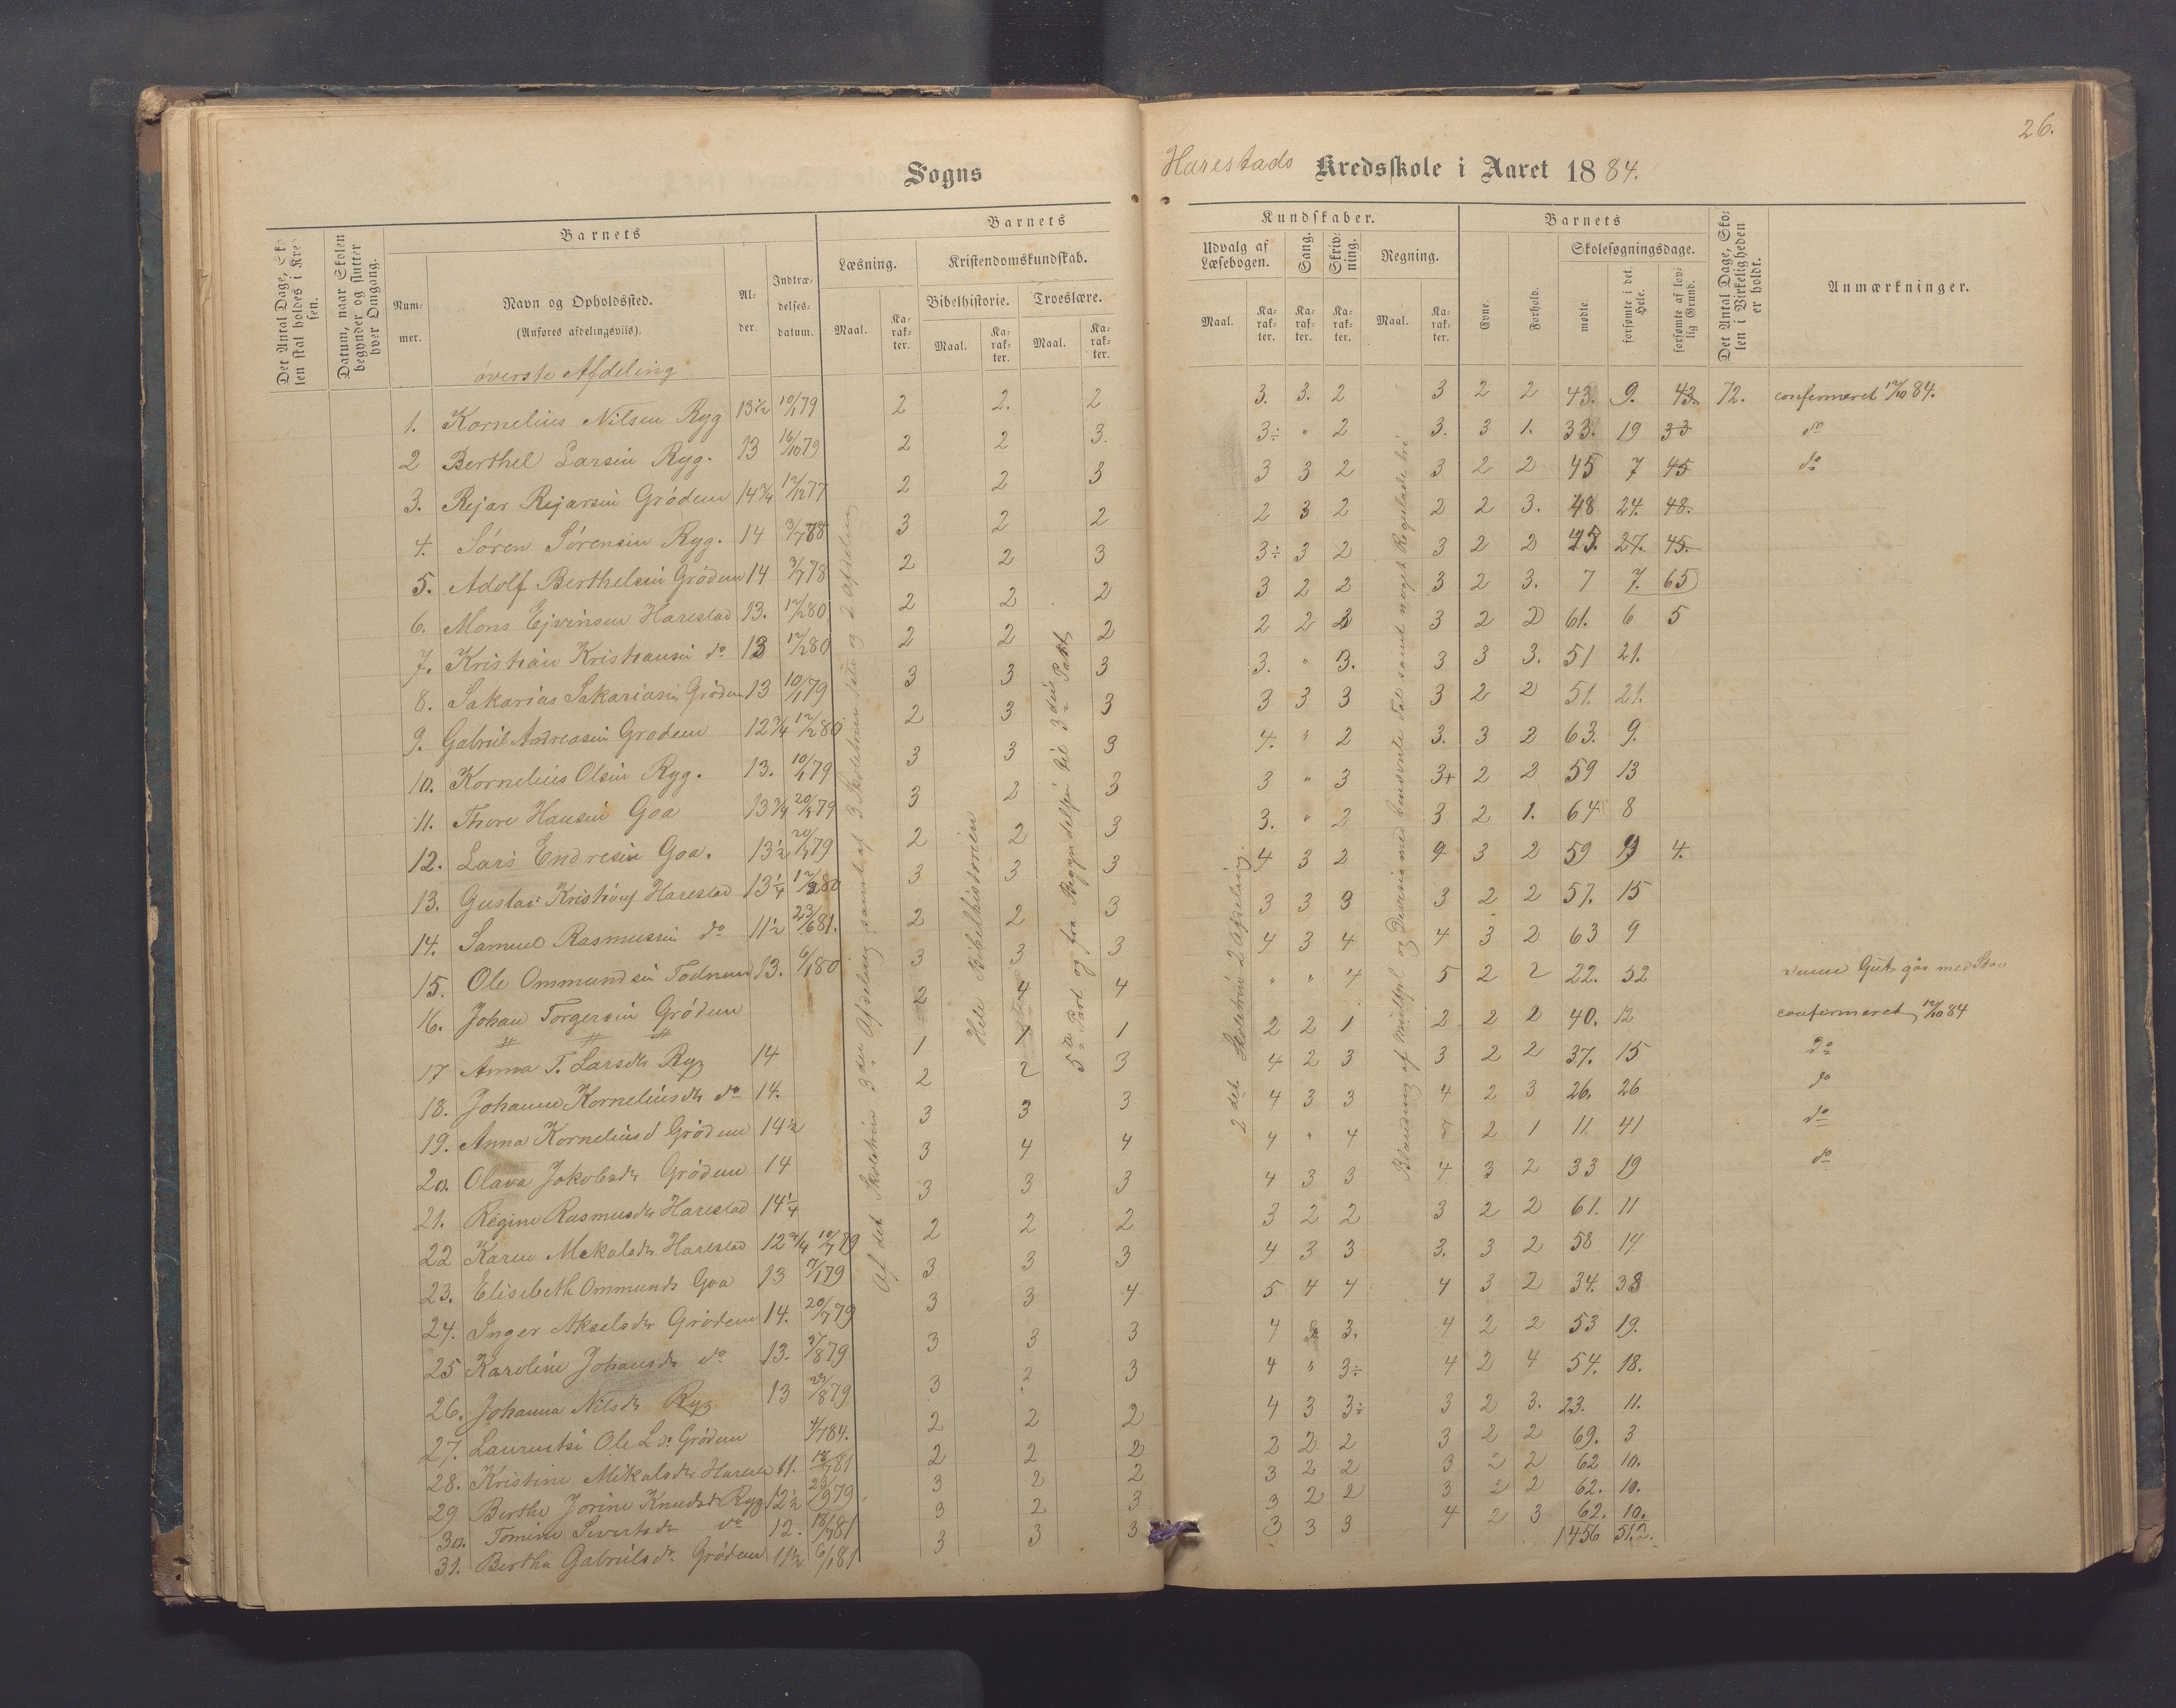 26.
Sogns
Harestads Kredsskole i Aaret 1884.
Det Antal Dage, Sko-
len skal holdes i Kred-
sen.
Datum, naar Skolen
begynder og slutter
hver Omgang.
Barnets
Num-
mer.
Navn og Opholdssted.
(Anføres afdelingsviis).
Al-
der.
Indtræ-
delses-
datum.
Barnets
Læsning.
Maal.
Ka-
rak-
ter.
Kristendomskundskab.
Bibelhistorie.
Maal.
Ka-
rak-
ter.
Troeslære.
Maal.
Ka-
rak-
ter.
Kundskaber.
Udvalg af
Læsebogen.
Maal.
Ka-
rak-
ter.
Sang.
Ka-
rak-
ter.
Skriv-
ning.
Ka-
rak-
ter.
Regning.
Maal.
Ka-
rak-
ter.
Barnets
Evne.
Forhold.
Skolesøgningsdage.
mødte.
forsømte i det
Hele.
forsømte af lov-
lig Grund.
Det Antal Dage, Sko-
len i Virkeligheden
er holdt.
Anmærkninger.
øverste Afdeling
1. Kornelius Nilsen Ryg 13½ 10/1 79 2 2. 2 3. 3. 2 3 2 2 43. 9. 43. 72. confermeret 12/10 84.
2 Berthel Larsen Ryg. 13 16/10 79 2 2 3. 3÷ " 2 3. 3 1. 33. 19 33 do
3. Rejar Rejarsen Grødem 14¾ 12/12 77 2 2 3 3 3 2 3 2 2 45 7 45 do
4. Søren Sørensen Ryg. 14 3/7 78 3 2 2 2 3 2 2 2 3. 48 24. 48.
5. Adolf Berthelsen Grødem 14 3/7 78 2 2 3 3÷ 3 2 3 2 2 45. 27. 45.
6. Mons Ejvinsen Harestad 13. 12/2 80 2 2 2 3 2 2 3 2 3. 7 7. 65
7. Kristian Kristiansen do 13 12/2 80 2 2 2 2 2 3 3 2 2 61. 6 5
8. Sakarias Sakariasen Grødem 13 10/1 79 3 3 3 3. " 3. 3 3 3. 51 21.
9. Gabriel Andreasen Grodem 12¾ 12/2 80 2 3 3 3 3 3 3 2 2 51. 21.
10. Kornelius Olsen Ryg. 13. 10/1 79 3 3 3 4. " 2 3. 3 2 63. 9.
11. Thore Hansen Goa 13¾ 20/1 79 3 2 3 3 " 3 3+ 2 2 59 13
12. Lars Endresen Goa. 13½ 20/1 79 2 2 3 3. " 2 3 2 1. 64 8
13. Gustav Kristians Harestad 13¼ 12/2 80 3 3 3 4 3 2 4 3 2 59 13 4.
14. Samuel Rasmussen do 11½ 23/6 81. 2 2 3 3 3 3 3 2 2 57. 15
15. Ole Ommundsen Todnem 13. 6/1 80 3 3 3 4 3 4 4 3 2 63 9
16. Johan Torgersen Grødem 3 4 4 " " 4 5 2 2 22. 52
17 Anna T. Larsdtr Ryg 14 1 1 1 2 2 1 2 2 2 40. 12 confermeret 12/10 84
18. Johanne Korneliusdtr do 14. 2 2 3 4 2 3 3 2 2 37. 15 do
19. Anna Korneliusd Grødem 14½ 3 3 3 4 3 3 4 2 3 26. 26 do
20. Olava Jakobsdtr Grødem 14 3 4 4 4 " 4 2 1 11 41 do
21. Regine Rasmusdtr Harestad 14¼ 3 3 3 4 3 3 4 3 2 33 19 do
22 Karen Mekalsdtr Harestad 12¾ 10/7 79 2 2 2 3 2 2 3 2 2 61. 11
23. Elisabeth Ommunds Goa 13 7/1 79 3 3 3 4 3 3 3. 3 2 58 14
24. Inger Akselsdtr Grødem 14. 20/7 79 3 3 4 5 4 4 4 3 2 34. 38
25 Karoline Johansdtr do 13. 27/8 79 3 3 3 4 3 3. 4 2 2 53 19.
26. Johanna Nilsdtr Ryg 13 /8 79 3 2 3 4 " 3÷ 4 2 4 54. 18.
27. Laurentse Ole Ldr Grödem 4/7 84. 2 2 2 4 3 3÷ 3 2 3. 23. 11.
28. Kristine Mikalsdtr Harestad 11. 81 2 2 2 2 2 2 3 2 2 69. 3
29 Berthe Jorine Knudsdt Ryg 12½ 79 3 2 2 3 2 2 3 2 2 62 10.
30. Tomine Sivertsdtr do 12. 18/7 81 3 2 3 3 2 2 3 2 2 62. 10.
31. Bertha Gabrielsdr. Grödem 11½ 6/1 81 3 3 3 3 3 3 4 2 3 62. 10.
1456 512.
Af det Skoletrin 3die Afdeling samt af 3 Skoletrin 1ste og 2 Afdeling
Hele Bibelhistorien
5te Part og fra Begyndelsen til 3die Part
2det Skoletrin 2 Afdeling.
Blanding af Multipl. og Division med benævnte Tal samt noget Reguladetri